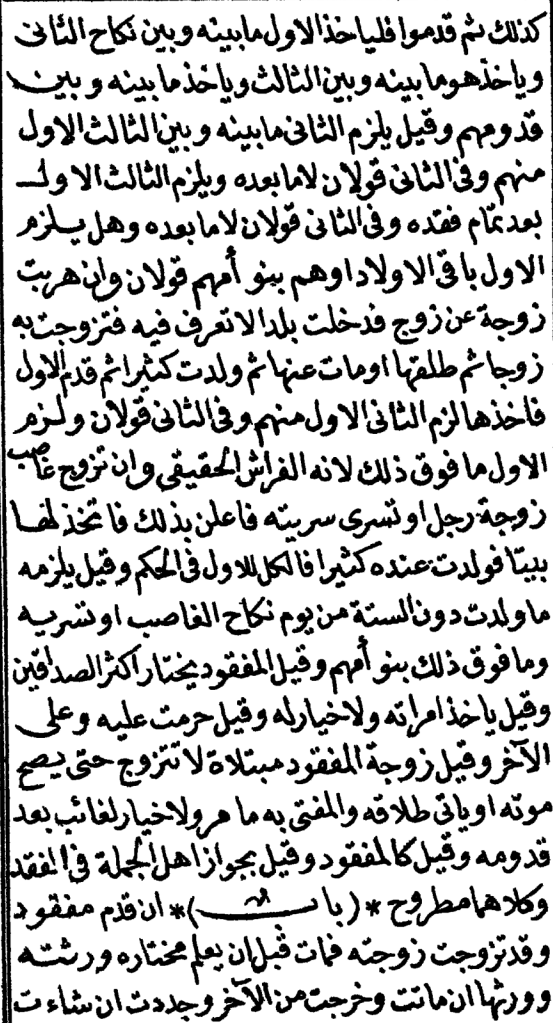 كذلك ثم قدموا فلياخذ الاول مابينه وبين نكاح الثانى
وياخذ هو مابينه وبين الثالث وياخذ مابينه وبين
قدومهم وقيل يلزم الثانى مابينه وبين الثالث الاول
منهم وفى الثانى قولان لامابعده ويلزم الثالث الاول
بعد تمام فقده وفى الثانى قولان لامابعده وهل يلزم
الاول باقى الاولاد اوهم بنو أمهم قولان وان هربت
زوجة عن زوج فدخلت بلدا لاتعرف فيه فتزوجت به
زوجا ثم طلقها اومات عنها ثم ولدت كثيرا ثم قدم الاول
فاخذها لزم الثانى الاول منهم وفى الثانى قولان ولزم
الاول مافوق ذلك لانه الفراش الحقيقى وان تزوج غاصب
زوجة رجل او تسرى سريته فاعلن بذلك فاتخذ لها
بيتا فولدت عنده كثيرا فالكل للاول فى الحكم وقيل يلزمه
ماولدت دون الستة من يوم نكاح الغاصب او تسريه
ومافوق ذلك بنو أمهم وقيل المفقود يختار اكثر الصداقين
وقيل ياخذ امراته ولاخيار له وقيل حرمت عليه وعلى
الآخر وقيل زوجة المفقود مبتلاة لاتتزوج حتى يصح
موته اوياتى طلاقه والمفتى به مامر ولاخيار لغائب بعد
قدومه وقيل كالمفقود وقيل بجواز اهل الجملة فى الفقد
وكلاهما مطروح *(باب)* ان قدم مفقود
وقد تزوجت زوجته فمات قبل ان يعلم مختاره ورثته
وورثها ان ماتت وخرجت من الآخر وجددت ان شاءت